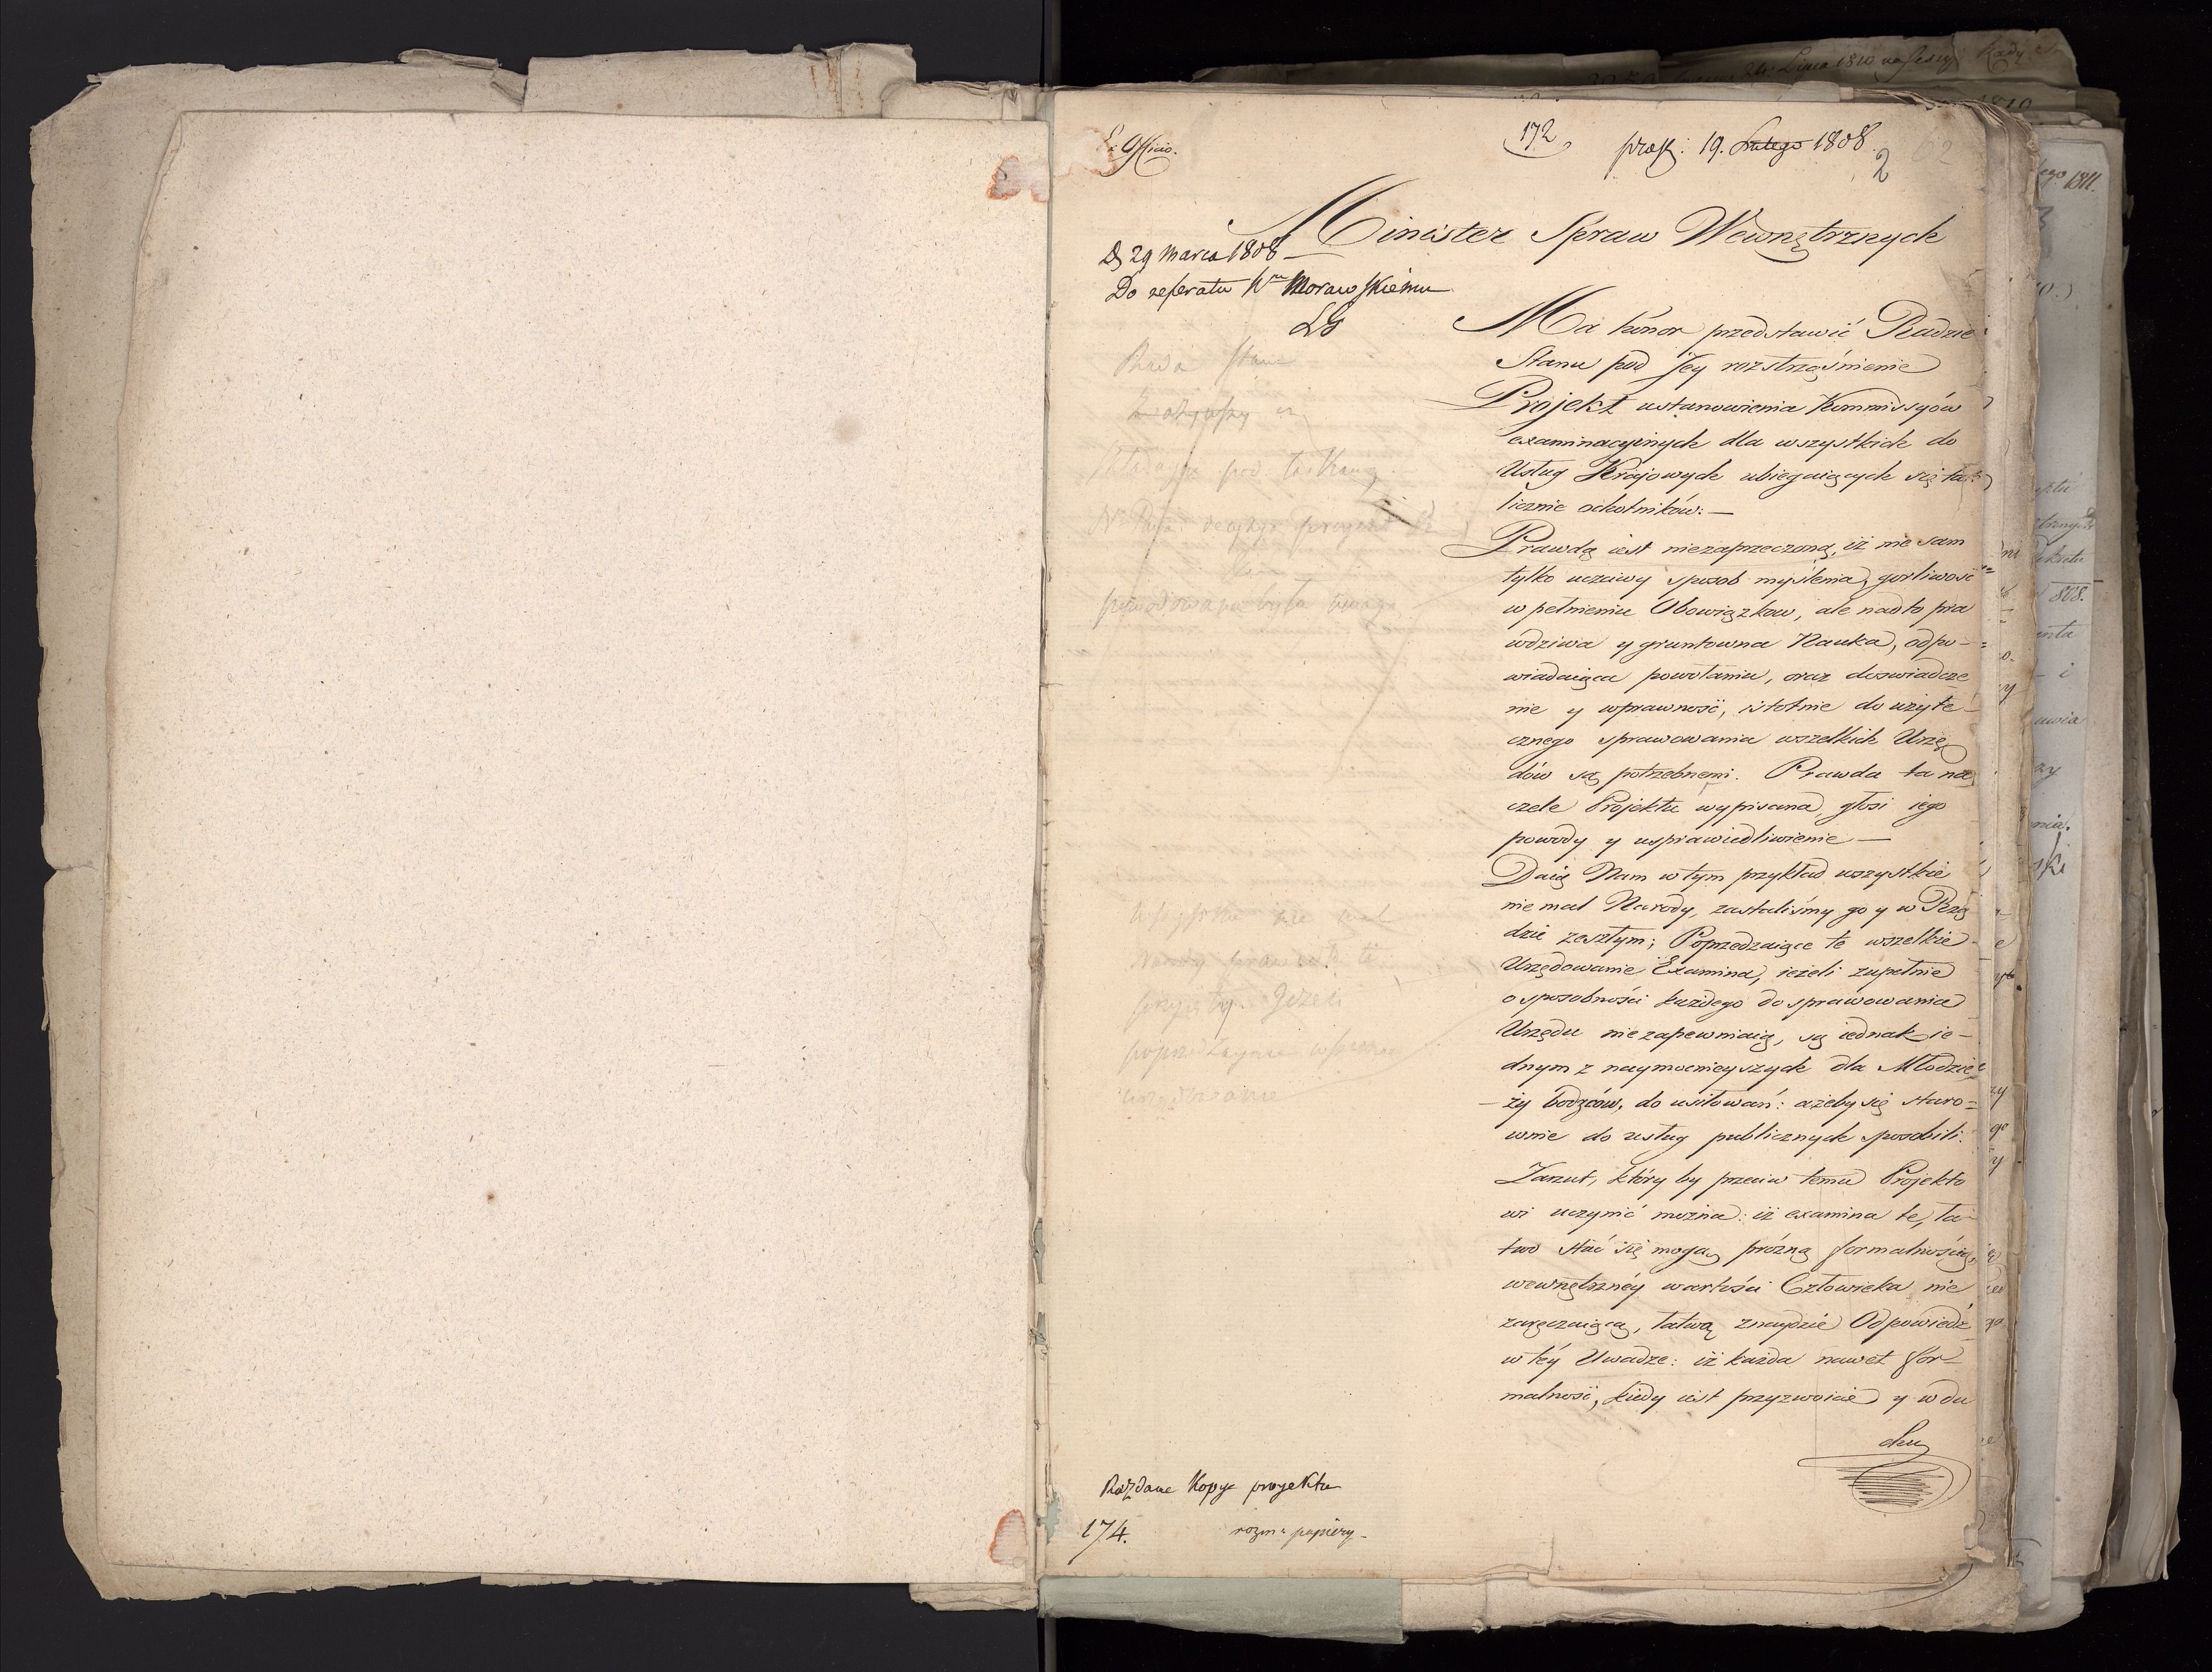 Ex Officio.
172
pras: 19. Lutego 1808.
2
62
Minister Spraw Wewnętrznych
D 29 Marca 1808
Do referatu Wmu Morawskiemu
Ma honor przedstawić Radzie
Stanu pod Jey rozstrząśnienie
Projekt ustanowienia Kommissyów
examinacyinych dla wszystkich do
Usług Krajowych ubiegaiących się ta-
licznie ochotników: —
Prawdą iest niezaprzeczoną, iż nie sam
tylko uczciwy sposob myślenia, gorliwość
w pełnieniu Obowiązkow, ale nadto pra
wdziwa y gruntowna Nauka, odpo-
wiadaiąca powołaniu, oraz doswiadcze
nie y wprawność, istotnie do użyte-
cznego sprawowania wszelkich Urzę
dów są potrzebnemi. Prawda ta na
czele Projektu wypisana, głosi iego
powody y usprawiedliwienie —
Daią Nam w tym przykład wszystkie
nie mal Narody, zastaliśmy go y w Rzą
dzie zeszłym; Poprzedzaiące te wszelkie
Urzędowanie Examina, ieżeli zupełnie
o sposobności każdego do sprawowania
Urzędu nie zapewniaią, są iednak ie-
dnym z naymocnieyszych dla Młodzie
ży bodzców, do usiłowań: ażeby się staro=
wnie do usług publicznych sposobili.
Zarzut, który by przeciw temu Projekto
wi uczynić można: iż examina te, ła-
two stać się mogą próżną formalnością,
wewnętrznéy wartości Człowieka nie
zaręczaiącą, łatwą znaydzie Odpowiedź
w téy Uwadze: iż każda nawet for-
malność, kiedy iest przyzwoicie y w du
chu
Rada Stanu
pod
Narody
Jeżeli
Rozdane Kopye proyektu
174.
papiery